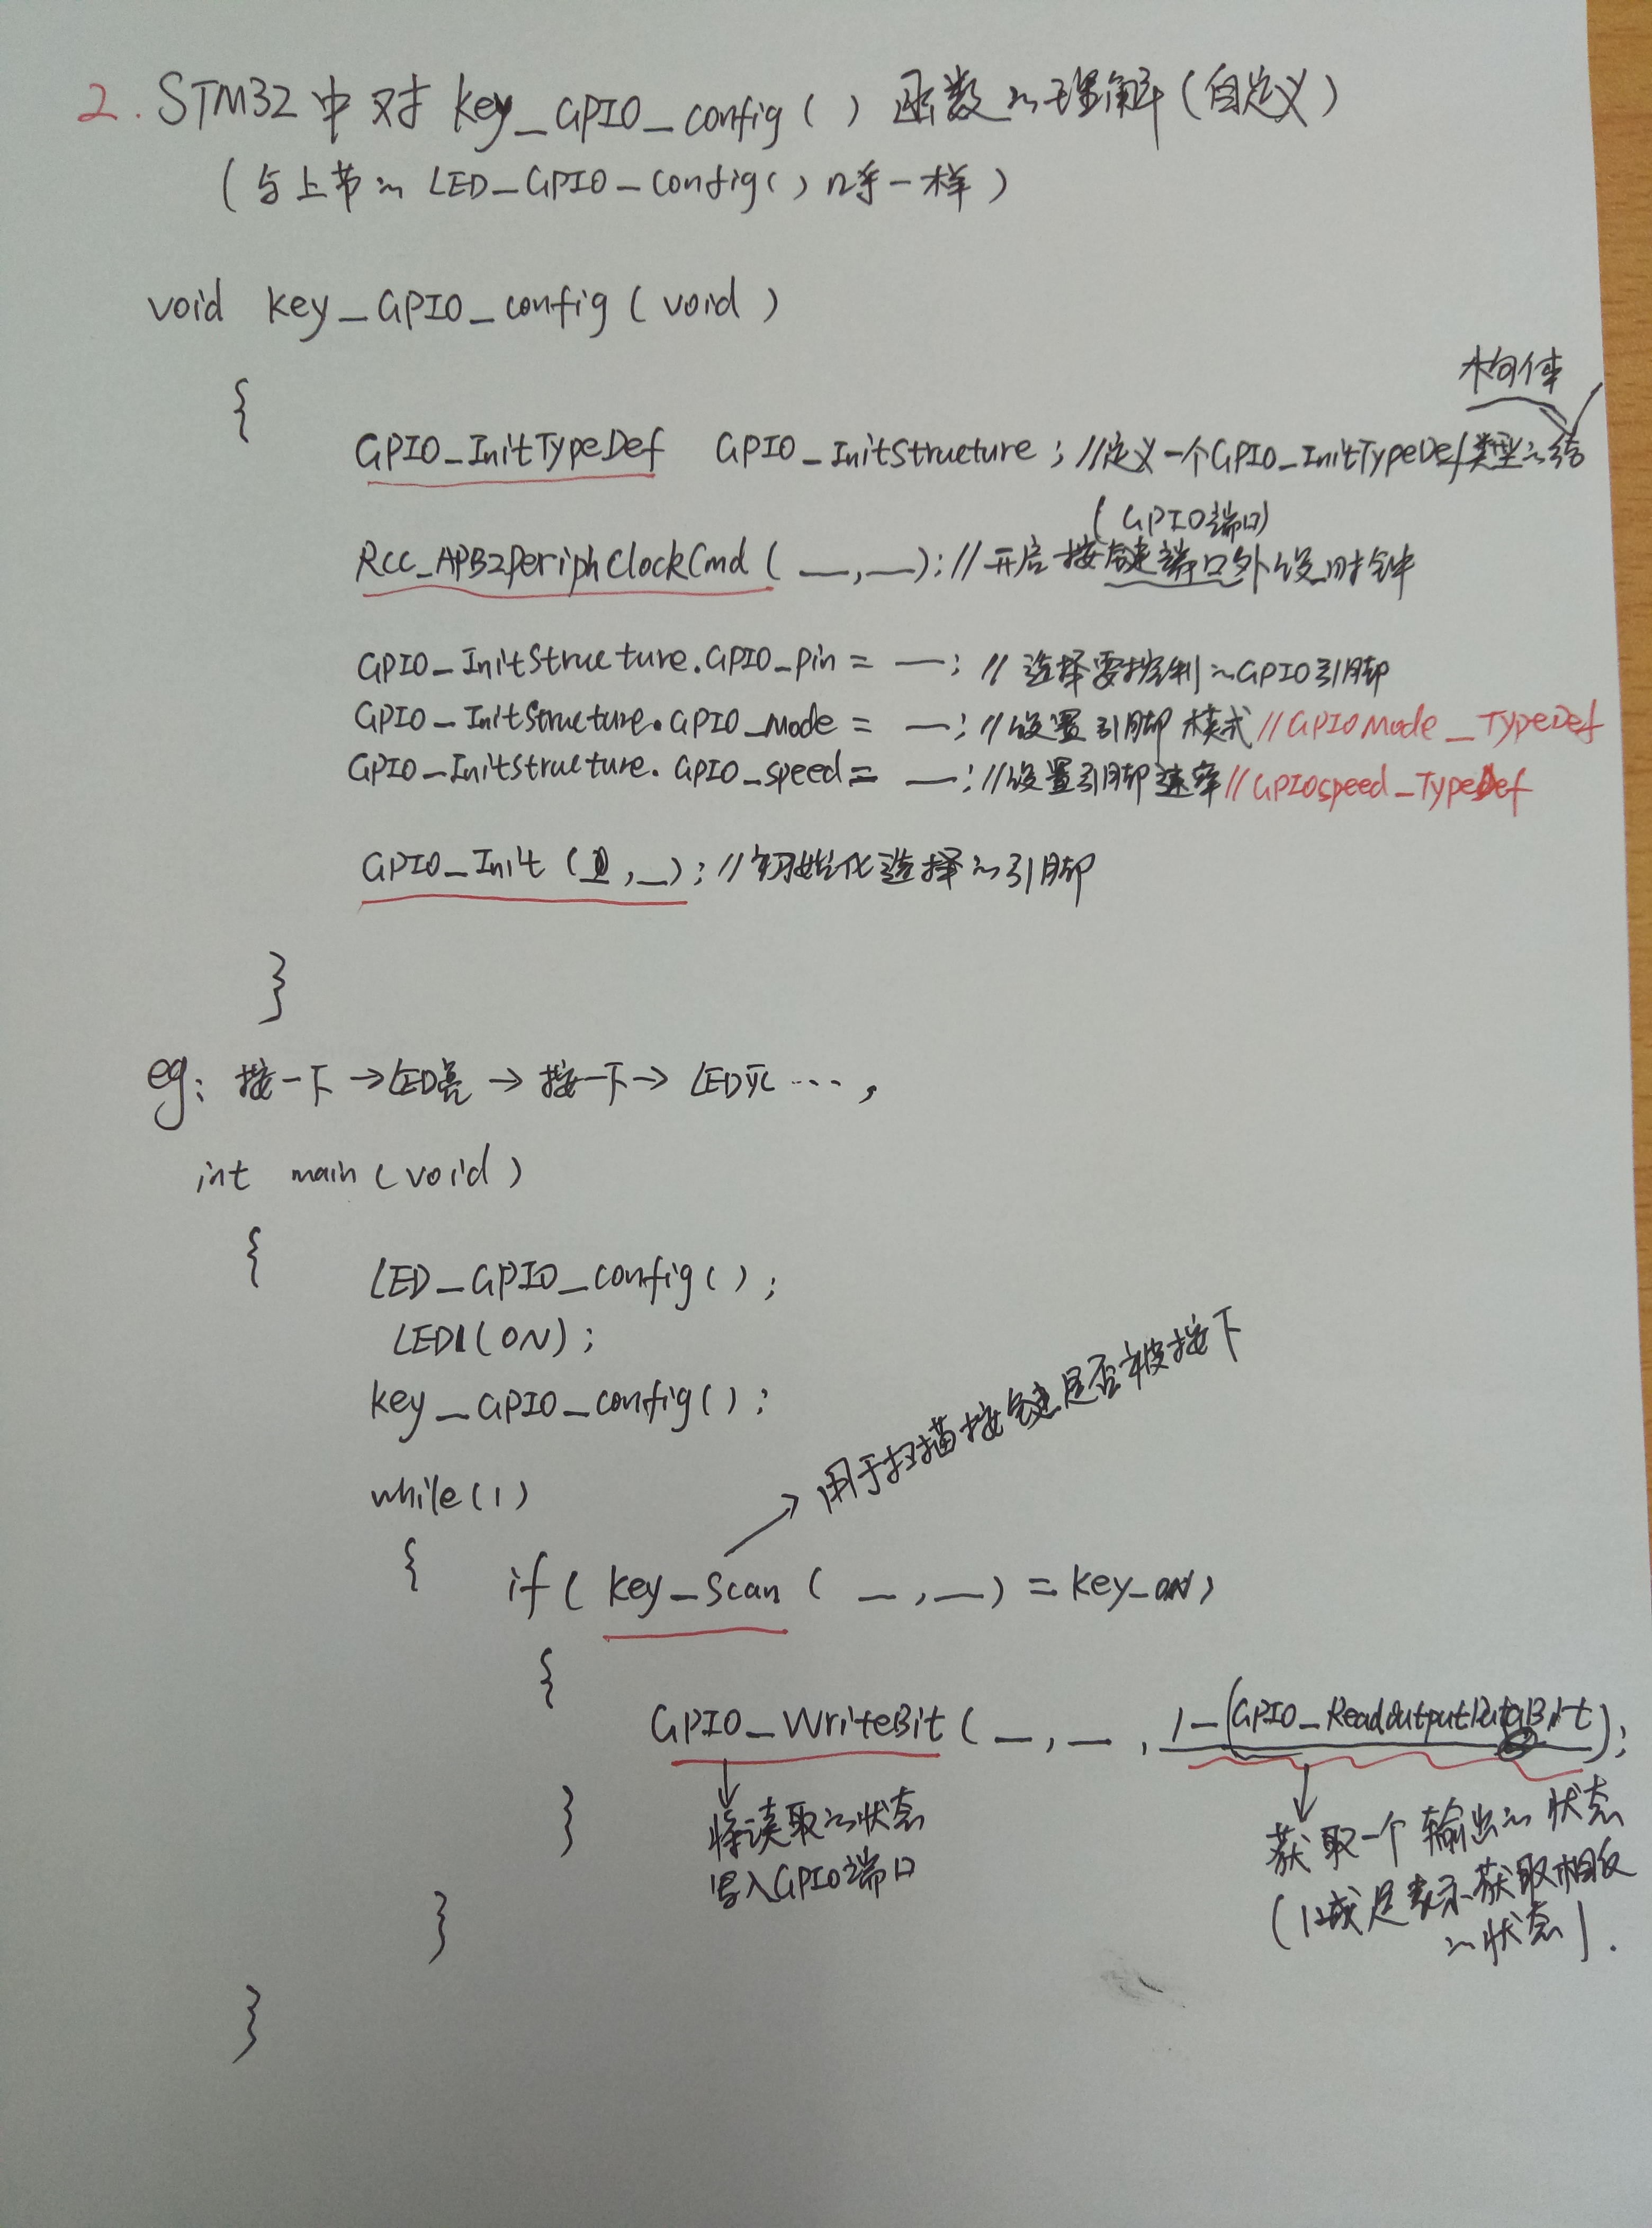 2. STM32中对 key_GPIO_config( ) 函数的理解(自定义)
(与上节的 LED_GPIO_config() 几乎一样)
void key_GPIO_config(void)
{
构体
GPIO_InitTypeDef GPIO_InitStructure; //定义一个GPIO_InitTypeDef类型的结
(GPIO端口)
RCC_APB2PeriphClockCmd( __,__); //开启按键端口外设时钟
GPIO_InitStructure.GPIO_pin = __; // 选择要控制的GPIO引脚
GPIO_InitStructure.GPIO_mode = __; //设置引脚模式 //GPIOMode_TypeDef
GPIO_InitStructure.GPIO_speed = __; //设置引脚速率 //GPIOspeed_TypeDef
GPIO_Init( _,_); //初始化选择的引脚
}
eg: 按一下→LED亮→按一下→LED灭....,
int main(void)
{
LED_GPIO_config();
LED1(ON);
key_GPIO_config();
while(1)
→用于扫描按键是否被按下
{ if( key_scan( __,__) = key_ON)
{
GPIO_WriteBit( __,__, 1-(GPIO_ReadOutputDataBit);
↓将读取的状态
写入GPIO端口
↓获取一个输出的状态
(1减是表示获取相反
的状态).
}
}
}